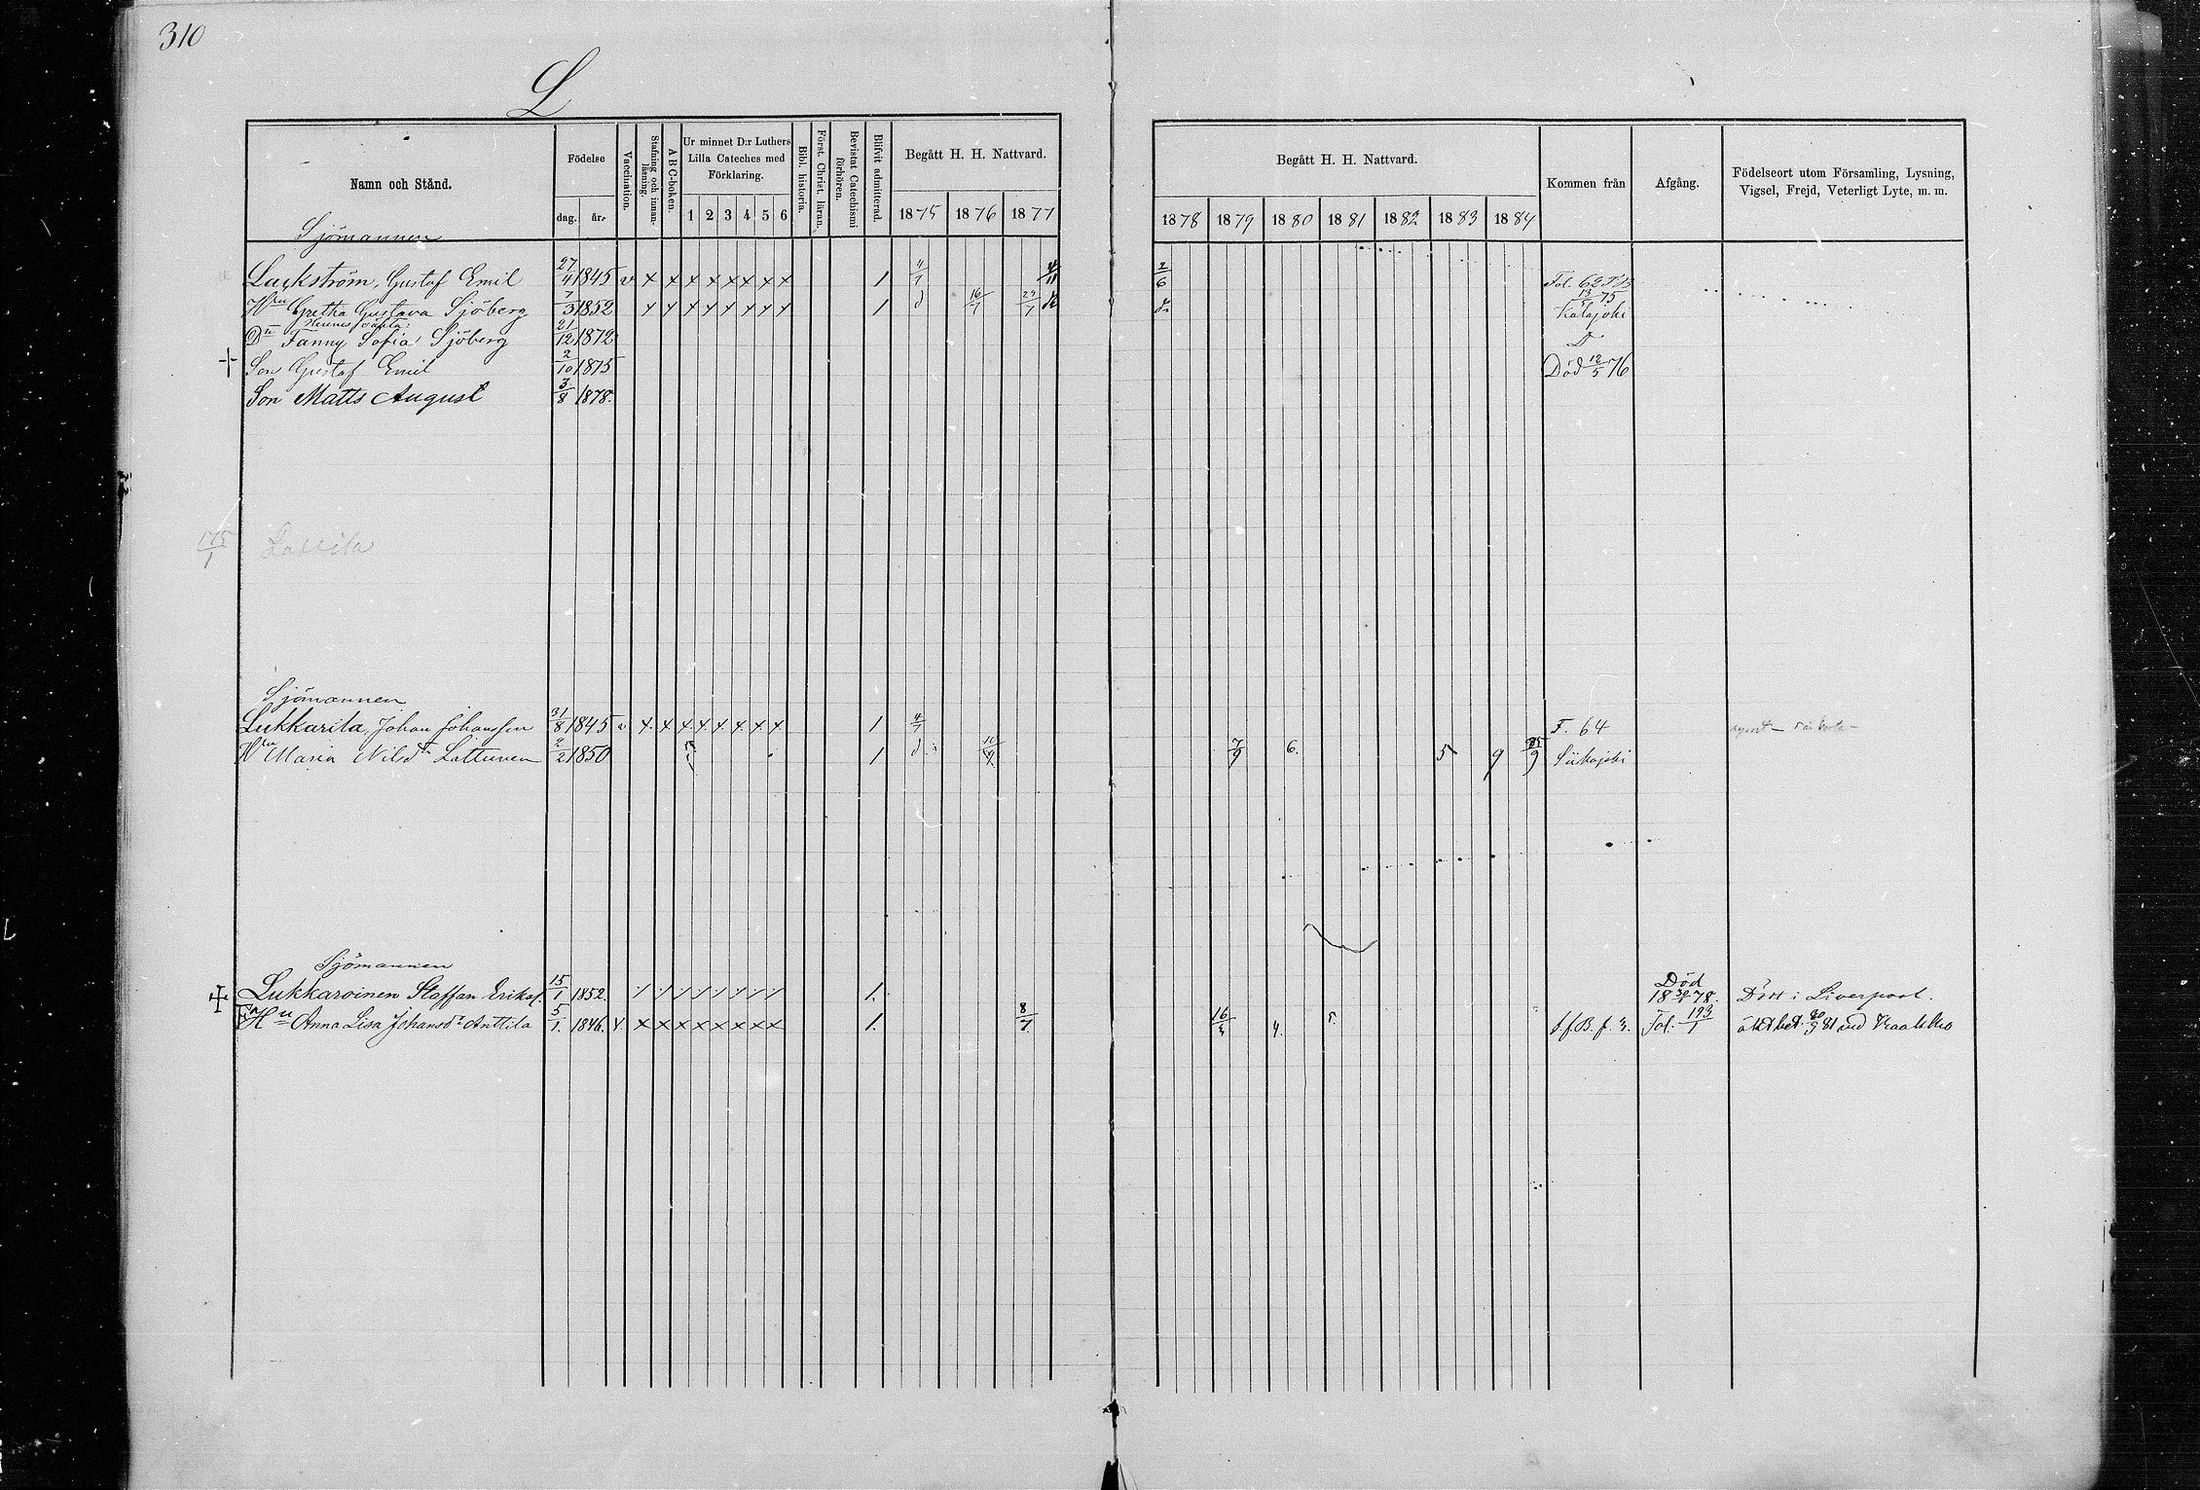 310
L
Namn och Stånd.
Födelse
dag. år.
Vaccination.
Stafning och innan-läsning.
A B C-boken.
Ur minnet D:r Luthers Lilla Cateches med Förklaring.
1 2 3 4 5 6
Bibl. historia.
Först. Christ. läran.
Bevistat Catechismi förhören.
Blifvit admitterad.
Begått H. H. Nattvard.
1875 1876 1877
Begått H. H. Nattvard.
1878 1879 1880 1881 1882 1883 1884
Kommen från
Afgång.
Födelseort utom Församling, Lysning, Vigsel, Frejd, Veterligt Lyte, m. m.
Sjömannen
Luckström, Gustaf Emil 27/4 1845 v x x x x x x x x 1 4/7 4/11 2/6 Fol. 62
Hru Gretha Gustava Sjöberg 7/3 1852 x x x x x x x x 1 d 16/7 29/7 13/75 Kalajoki
Hennes oäkta:
Dr Fanny Sofia Sjöberg 21/12 1872 D
+ Son Gustaf Emil 2/10 1875 Död 12/5 76
Son Matts August 3/8 1878.
175/1 Lassila
Sjömannen
Lukkarila, Johan Johansson 31/8 1845 v x x x x x x x x 1 4/7 F. 64
Hru Maria Nilsdr Lattunen 2/2 1850 1 d 10/9 7/9 6. 5 9 85/9 Siikajoki
Sjömannen
Lukkaroinen Staffan Erikss. 15/1 1852. 1. Död 1878. Död i Liverpool.
Hu Anna Lisa Johansdr Anttila 5/1. 1846. v. x x x x x x x x 1. 8/7 16/3 4. 5. f.f.B. f. 3. Fol. 193/1 äktbet. 30/9 81 med Kraakko